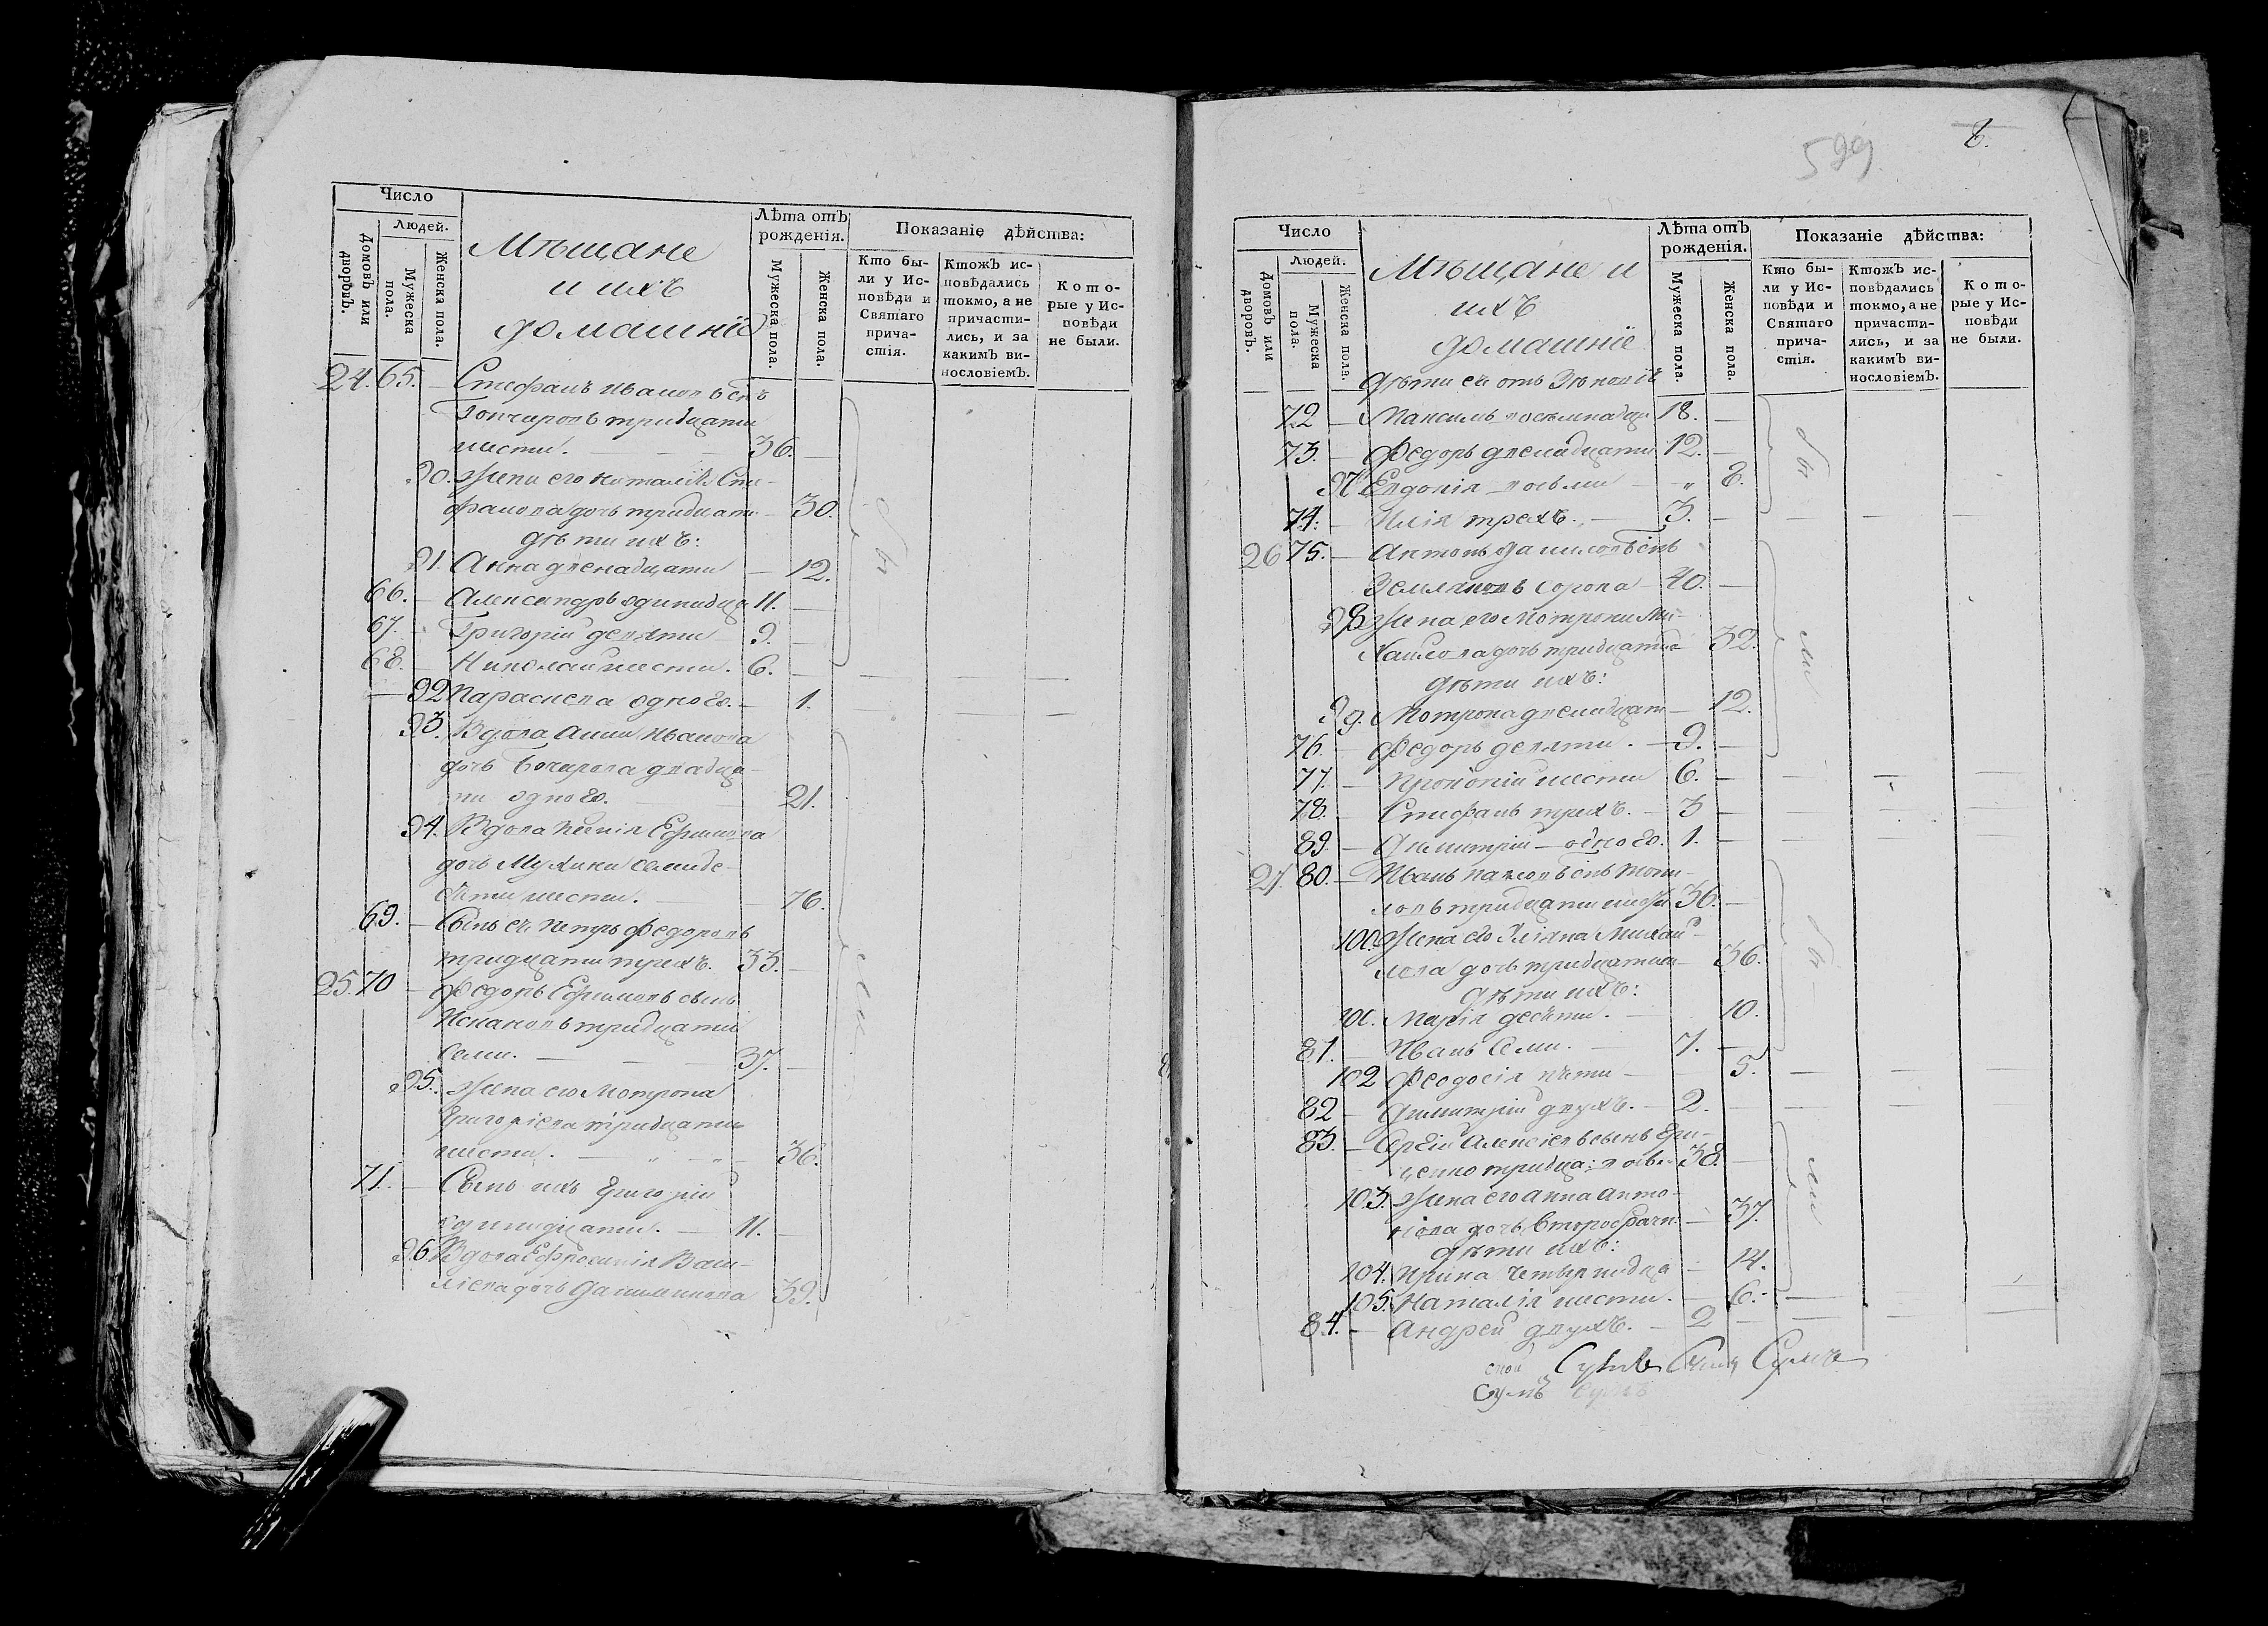 Число
Людей.
Домовъ или дворовъ.
Мужеска пола.
Женска пола.
Мѣщане
и ихъ
домашніе
Лѣта отъ рожденія.
Мужеска пола.
Женска пола.
Показаніе дѣйства:
Кто бы-
ли у Ис-
повѣди и
Святаго
прича-
стія.
Ктожъ ис-
повѣдались
токмо, а не
причасти-
лись, и за
какимъ ви-
нословіемъ.
Кото-
рые у Ис-
повѣди
не были.
24. 65. – Стефанъ Ивановъ снъ
Гончаровъ тридцати
шести. 36. –
90. Жена его Наталія Сте-
фанова дочь тридцати – 30.
Дѣти ихъ:
91. Анна двенадцати – 12.
66. – Александръ одинадца 11. –
67. – Григорій девяти 9. –
68. – Николай шести. 6. –
92 Параскева одного. – 1.
93. Вдова Анна Иванова
дочь Бочарова двадца-
ти одного. 21.
94. Вдова Ксенія Ефимова
дочь семиде-
сяти шести. – 76.
69. – Сынъ ея Петръ Федоровъ
тридцати трехъ. 33. –
25. 70 – Федоръ Ефимовъ сынъ
тридцати
семи. – 37. –
95. Жена его Мотрона
Григоріева тридцати
шести. – 36.
71. – Сынъ ихъ Григорій
одинадцати. – 11. –
96 Вдова Ефросинія Васи-
ліева дочь 39.
бы-
ли
599
8.
Число
Людей.
Домовъ или дворовъ.
Мужеска пола.
Женска пола.
Мѣщане и
ихъ
домашніе
Лѣта отъ рожденія.
Мужеска пола.
Женска пола.
Показаніе дѣйства:
Кто бы-
ли у Ис-
повѣди и
Святаго
прича-
стія.
Ктожъ ис-
повѣдались
токмо, а не
причасти-
лись, и за
какимъ ви-
нословіемъ.
Кото-
рые у Ис-
повѣди
не были.
Дѣти ея отъ
72 – Максимъ восемнадца 18. –
73. – Федоръ двенадцати 12. –
97 Евдокія восьми – „ 8.
74. – Илія трехъ. – 3. –
26 75. – Антонъ Даниловъ снъ
сорока 40. –
98 Жена его Мотрона Ми-
хайлова дочь тридцати 32.
Дѣти ихъ:
99. Мотрона двенадцат – 12.
76. – Федоръ девяти. – 9. –
77. – Прокопій шести 6. –
78. – Стефанъ трехъ. – 3 –
89. – Димитрій – одного. 1. –
27. 80. – Иванъ Павловъ снъ Томи-
ловъ тридцати шести 36. –
100. Жена его Уліяна Михай-
лова дочь тридцати 36.
Дѣти ихъ:
101. Марія десяти. – 10.
81. – Иванъ семи. – 7. –
102 Феодосія пяти – 5.
82 – Димитрій двухъ. – 2. –
83. – Сергій Алексіевъ сынъ Гри-
ценко тридца: восьм 38. –
103. Жена его Анна Анто-
ніова дочь второбрачн. – 37.
Дѣти ихъ:
104. Ирина четырнадца – 14.
105. Наталія шести. – 6. –
84. – Андрей двухъ. – 2 –
бы-
ли
бы-
ли